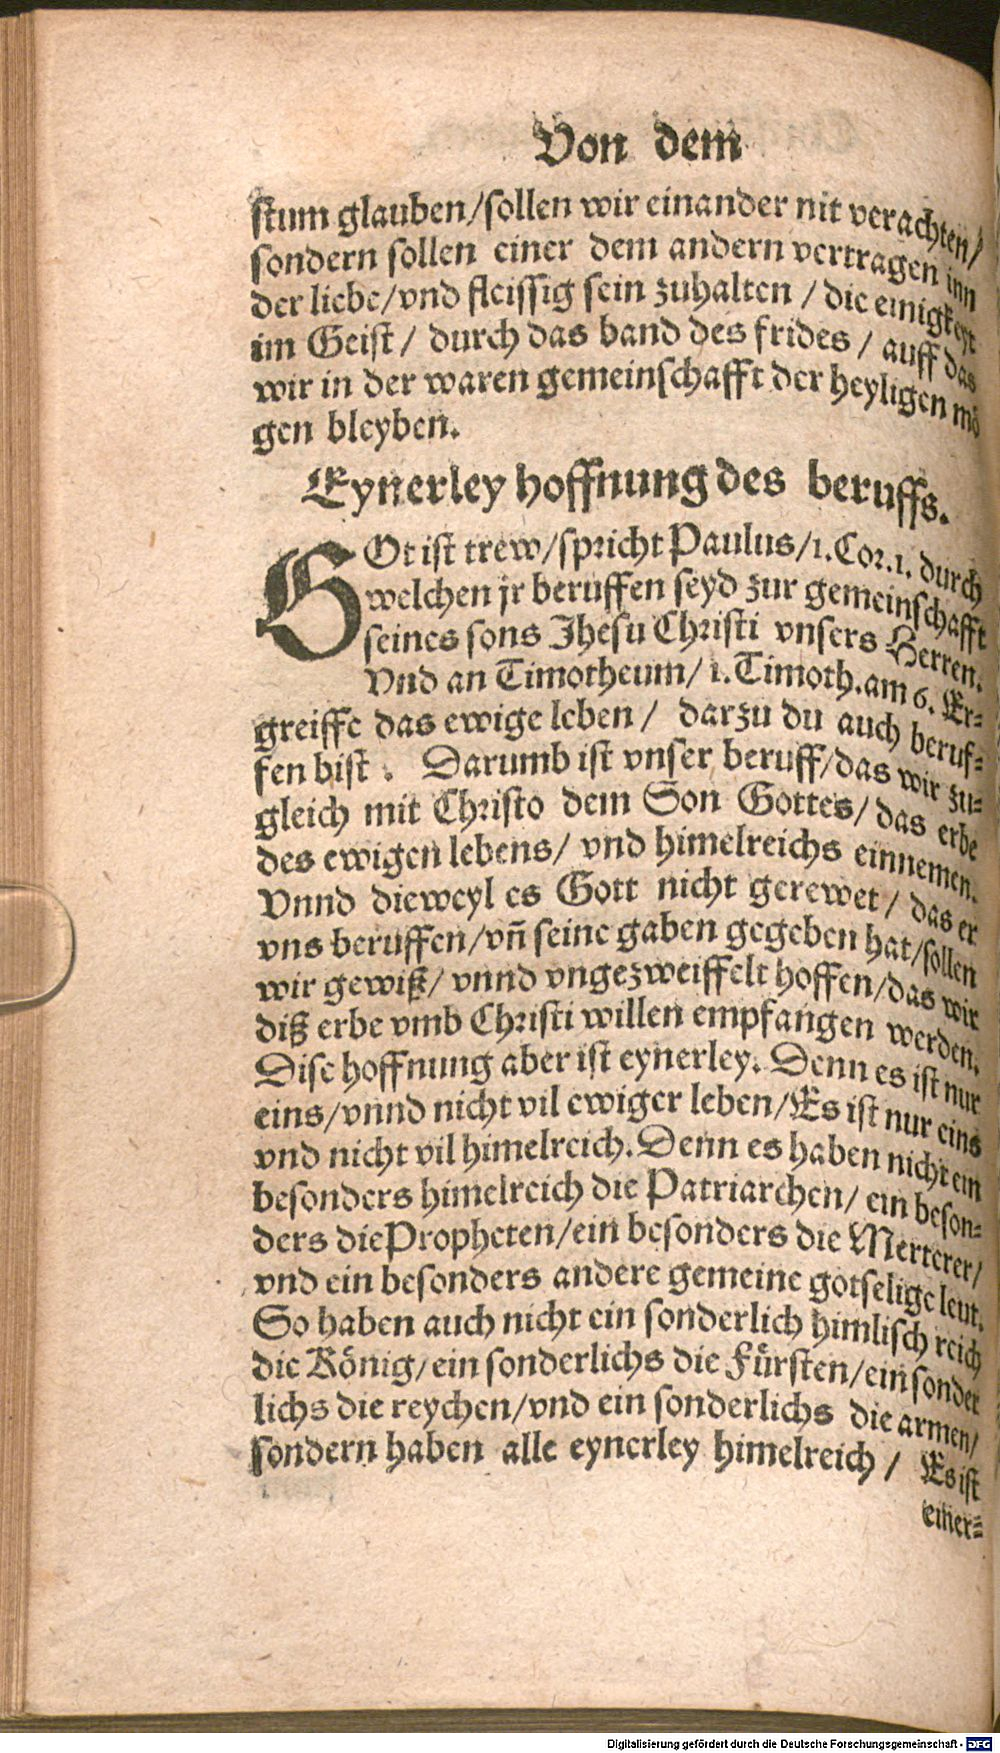 Von dem
stum glauben/sollen wir einander nit verachten/
sondern sollen einer dem andern vertragen inn
der liebe/vnd fleissig sein zuhalten / die einigkeyt
im Geist / durch das band des frides / auff das
wir in der waren gemeinschafft der heyligen mö
gen bleyben.
Eynerley hoffnung des beruffs.
GOt ist trew/spricht Paulus/1.Cor.1. durch
welchen jr beruffen seyd zur gemeinschafft
seines sons Jhesu Christi vnsers Herren.
Vnd an Timotheum/ 1.Timoth.am 6. Er-
greiffe das ewige leben / darzu du auch beruf-
fen bist . Darumb ist vnser beruff/das wir zu-
gleich mit Christo dem Son Gottes/ das erbe
des ewigen lebens/ vnd himelreichs einnemen.
Vnnd dieweyl es Gott nicht gerewet / das er
vns beruffen/vñ seine gaben gegeben hat/sollen
wir gewiß/ vnnd vngezweiffelt hoffen/das wir
diß erbe vmb Christi willen empfangen werden.
Dise hoffnung aber ist eynerley. Denn es ist nur
eins/vnnd nicht vil ewiger leben/Es ist nur eins
vnd nicht vil himelreich. Denn es haben nicht ein
besonders himelreich die Patriarchen/ ein beson-
ders die Propheten/ein besonders die Merterer/
vnd ein besonders andere gemeine gotselige leut.
So haben auch nicht ein sonderlich himlisch reich
die König/ein sonderlichs die Fürsten/ein sonder
lichs die reychen/vnd ein sonderlichs die armen/
sondern haben alle eynerley himelreich / Es ist
einer-
Digitalisierung gefördert durch die Deutsche Forschungsgemeinschaft - DFG